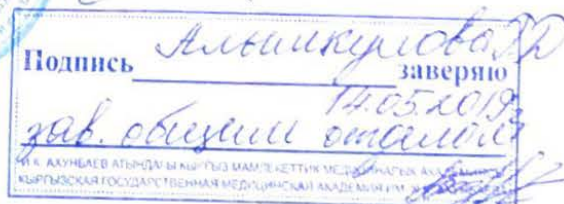 Подпись Алышкулова
заверяю
14.05.2019
зав. общим отделом
И.К. АХУНБАЕВ АТЫНДАГЫ КЫРГЫЗ МАМЛЕКЕТТИК МЕДИЦИНАЛЫК
КЫРГЫЗСКАЯ ГОСУДАРСТВЕННАЯ МЕДИЦИНСКАЯ АКАДЕМИЯ ИМ.